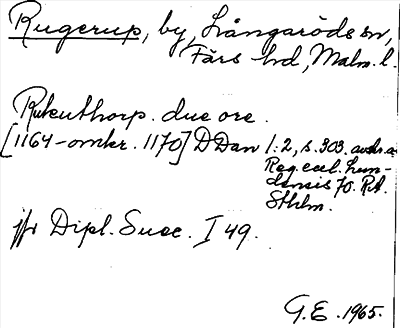 Rugerup, by, Långaröds sn,
Färs hd, Malm. l.
Rukuthorp. due ore.
[1164-omkr. 1170] DDan 1:2, s. 303. avskr. a.
Reg. eccl. Lun-
densis 70. RA.
Sthlm.
jfr Dipl. Suec. I 49.
G.E. 1965.